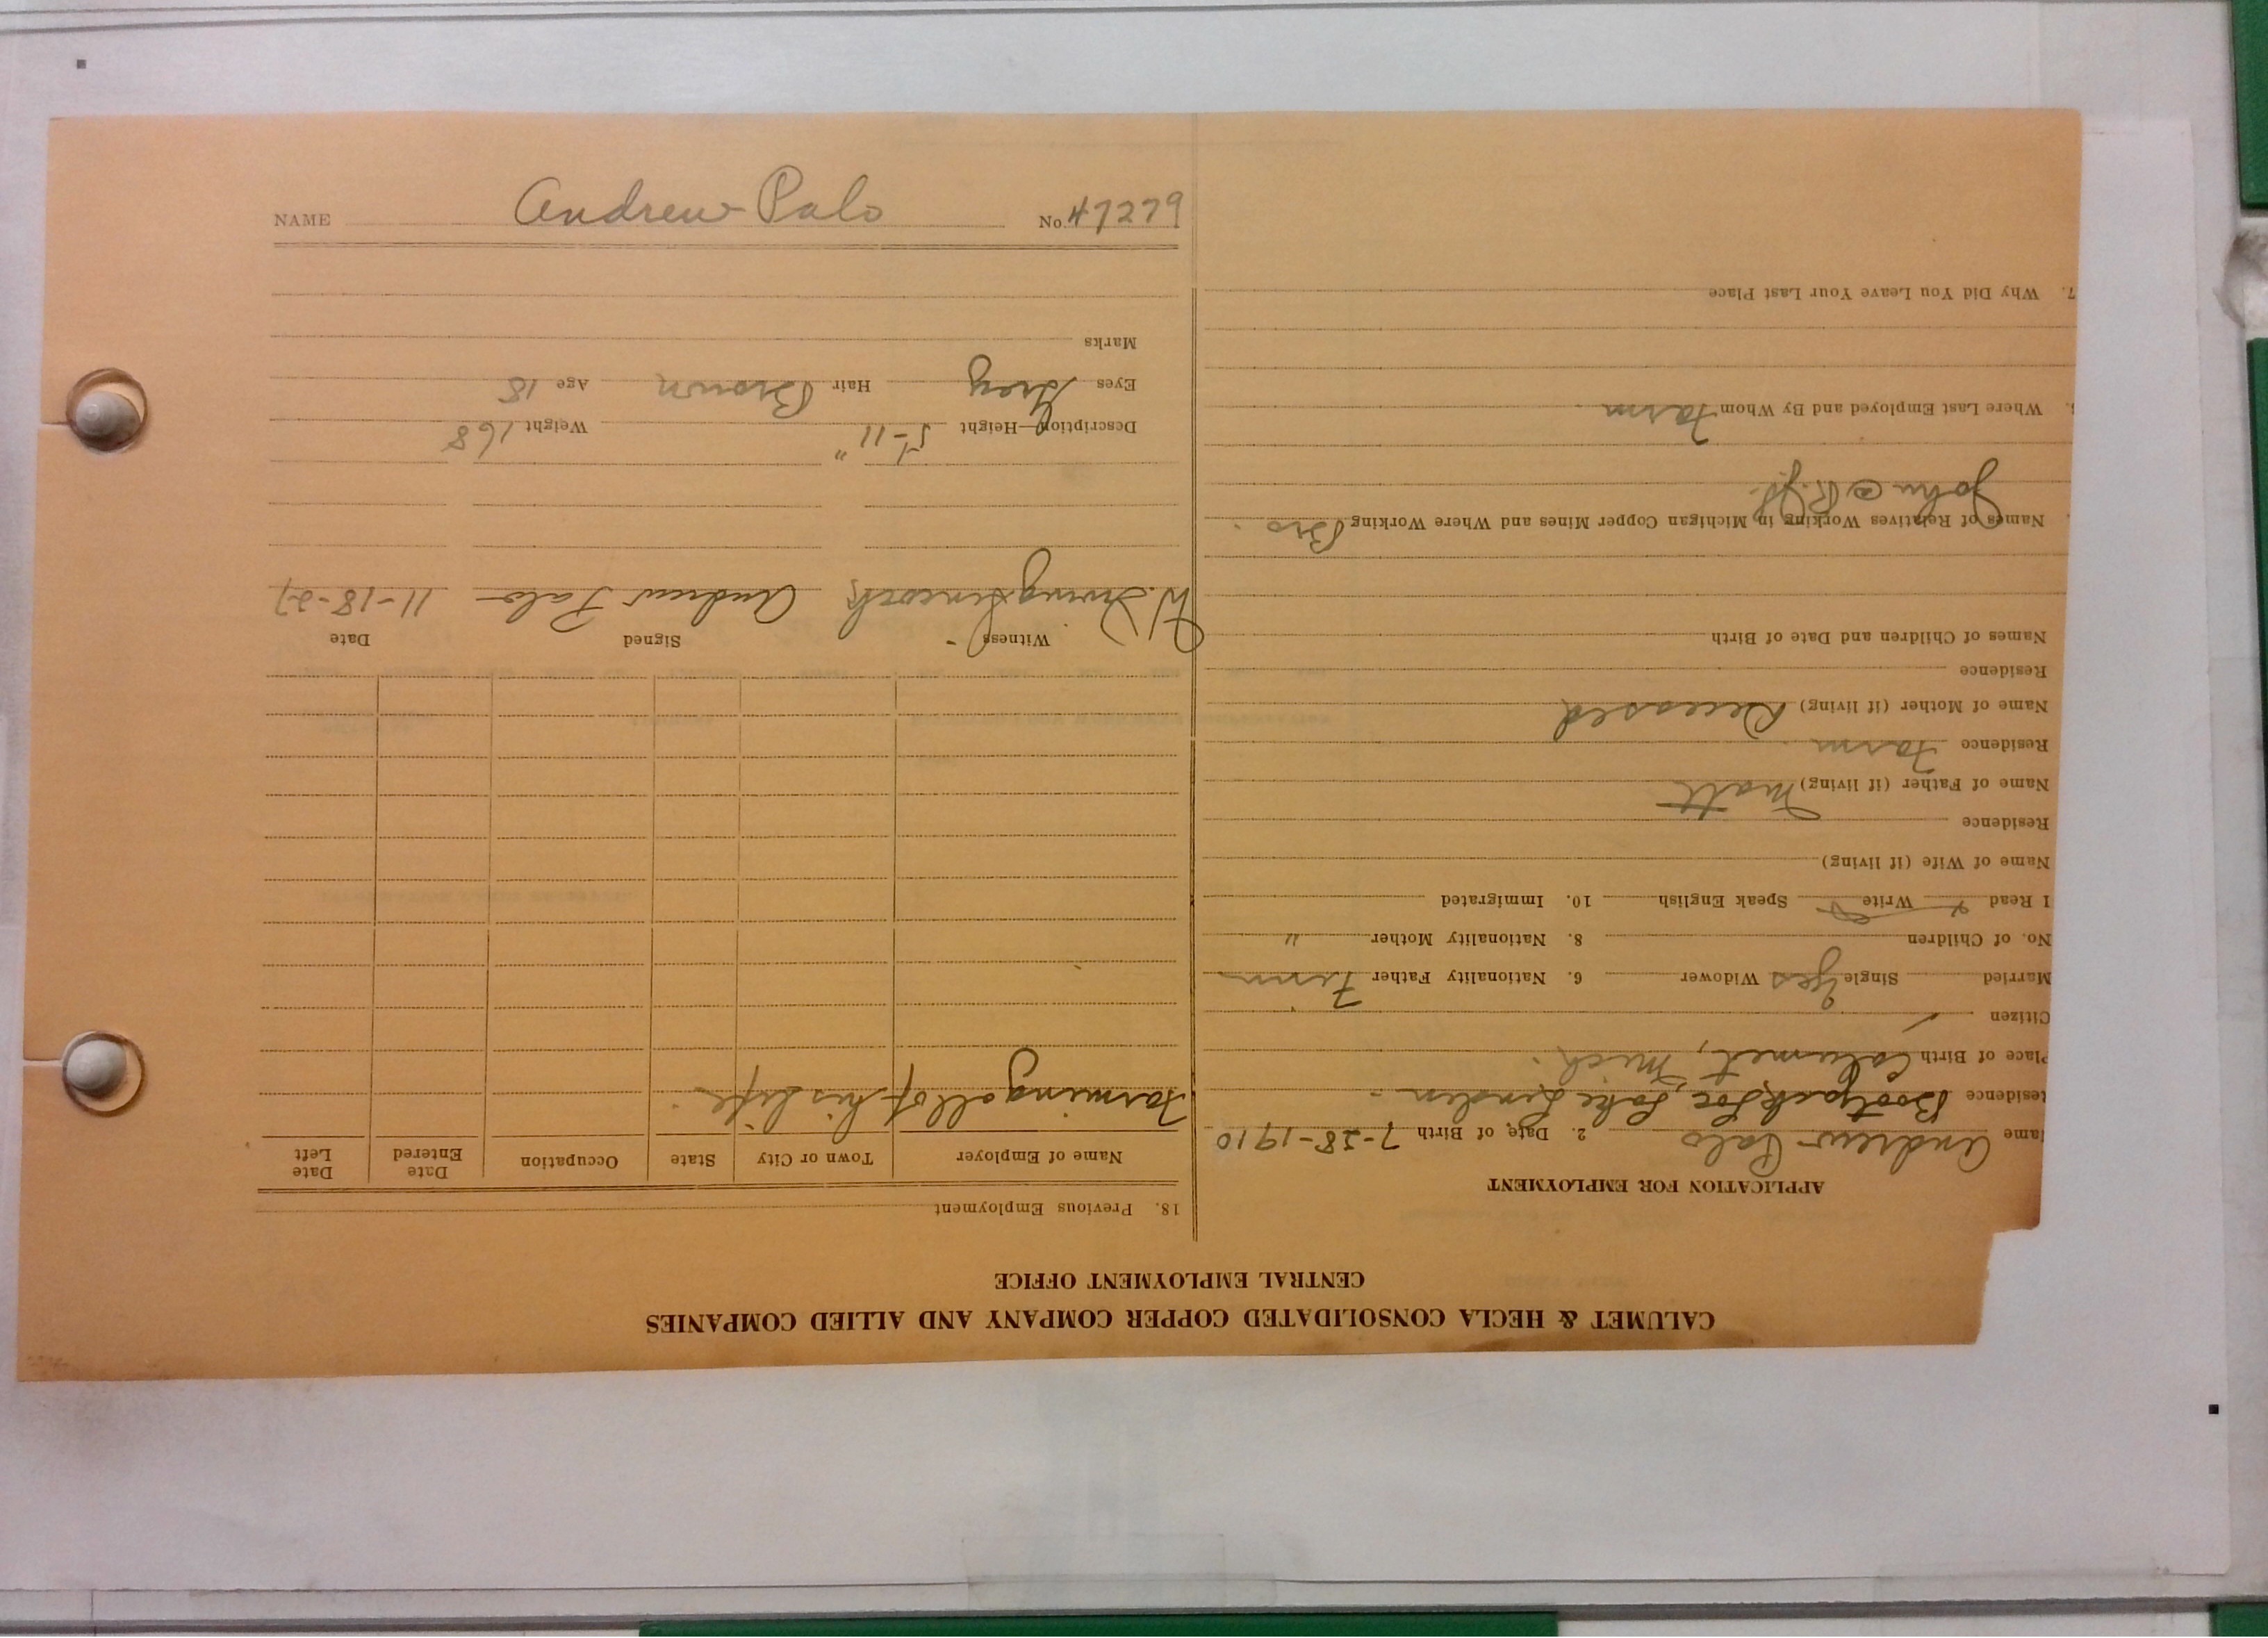 NAME Andrew Palo No. 47279
CALUMET & HECLA CONSOLIDATED COPPER COMPANY AND ALLIED COMPANIES
CENTRAL EMPLOYMENT OFFICE
APPLICATION FOR EMPLOYMENT
ame Andrew Palo 2. Date of Birth 7-28-1910
Residence Bootjack Loc, Lake Linden
Place of Birth Calumet, Mich.
Citizen ✓
Married Single Yes Widower 6. Nationality Father Finn
No. of Children 8. Nationality Mother "
I Read Write Speak English 10. Immigrated
Name of Wife (if living)
Residence
Name of Father (if living) Matt
Residence Farm
Name of Mother (if living) Deceased
Residence
Names of Children and Date of Birth
Names of Relatives Working in Michigan Copper Mines and Where Working Bro.
John @
Where Last Employed and By Whom Farm
7. Why Did You Leave Your Last Place
18. Previous Employment
Name of Employer Town or City State Occupation Date Entered Date Left
Farming all of his life.
Witness Signed Date
Andrew Palo 11-18-27
Description—Height 5-11" Weight 168
Eyes Grey Hair Brown Age 18
Marks